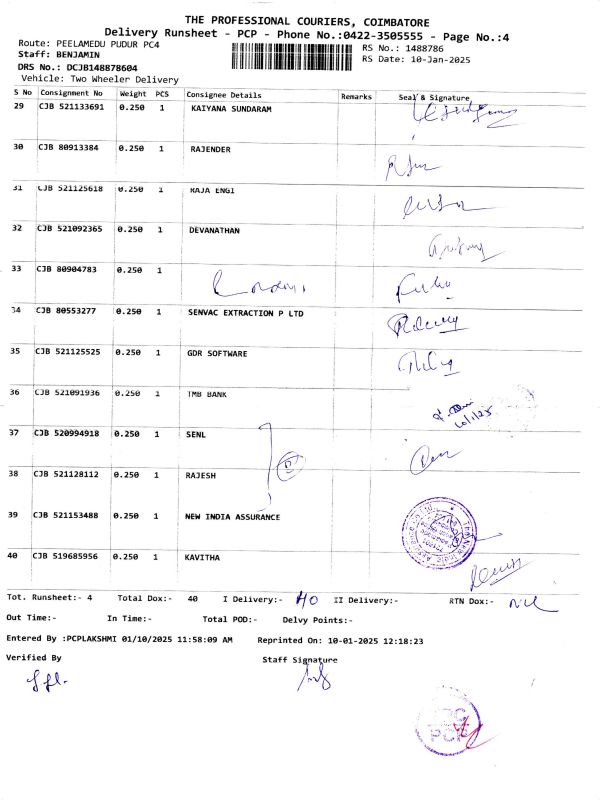 THE PROFESSIONAL COURIERS, COIMBATORE
Delivery Runsheet - PCP - Phone No.:0422-3505555 - Page No.:4
Route: PEELAMEDU PUDUR PC4 RS No.: 1488786
Staff: BENJAMIN RS Date: 10-Jan-2025
DRS No.: DCJB148878604
Vehicle: Two Wheeler Delivery
S No Consignment No Weight PCS Consignee Details Remarks Seal & Signature
29 CJB 521133691 0.250 1 KAIYANA SUNDARAM
30 CJB 80913384 0.250 1 RAJENDER
31 CJB 521125618 0.250 1 RAJA ENGI
32 CJB 521092365 0.250 1 DEVANATHAN
33 CJB 80904783 0.250 1
34 CJB 80553277 0.250 1 SENVAC EXTRACTION P LTD
35 CJB 521125525 0.250 1 GDR SOFTWARE
36 CJB 521091936 0.250 1 TMB BANK
10/1/25
37 CJB 520994918 0.250 1 SENL
38 CJB 521128112 0.250 1 RAJESH
39 CJB 521153488 0.250 1 NEW INDIA ASSURANCE
40 CJB 519685956 0.250 1 KAVITHA
Tot. Runsheet:- 4 Total Dox:- 40 I Delivery:- 40 II Delivery:- RTN Dox:- Nil
Out Time:- In Time:- Total POD:- Delvy Points:-
Entered By :PCPLAKSHMI 01/10/2025 11:58:09 AM Reprinted On: 10-01-2025 12:18:23
Verified By Staff Signature
PCP